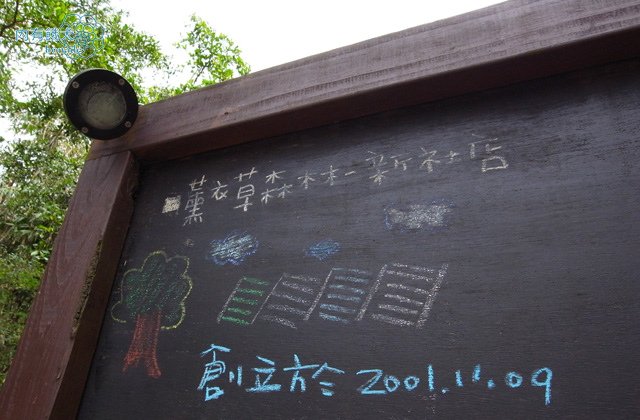 薰衣草森林-新社店
創立於2001.11.09